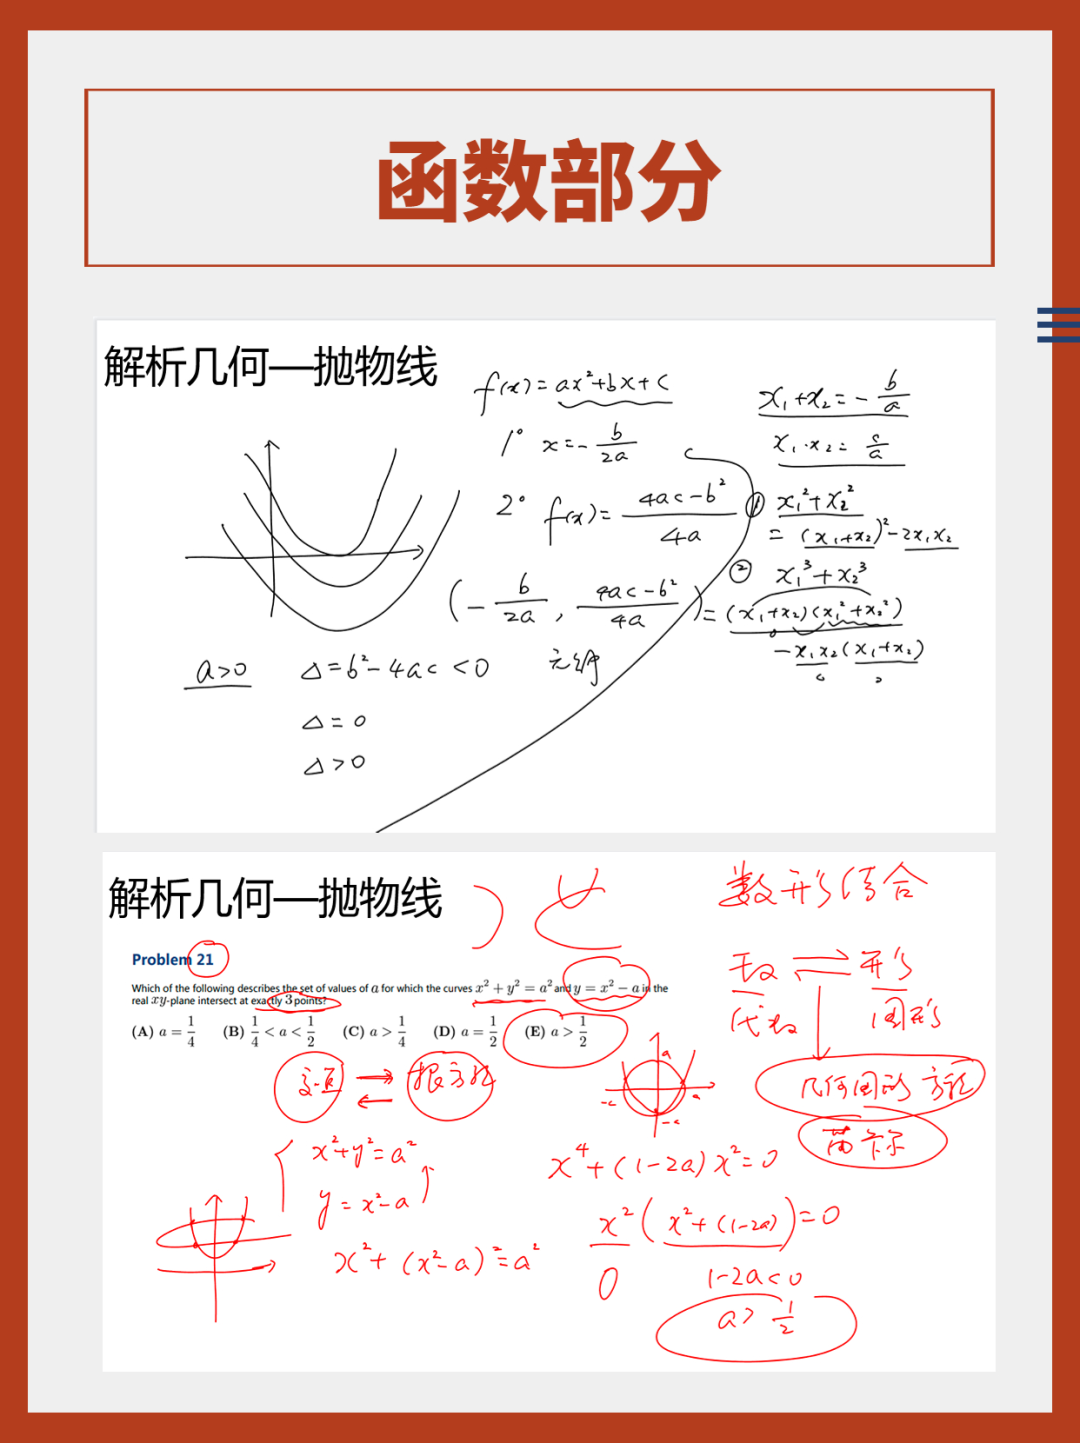 函数部分
解析几何—抛物线
f(x)=ax²+bx+c
1° x=-b/2a
2° f(x)=(4ac-b²)/4a
(-b/2a, (4ac-b²)/4a)
a>0 △=b²-4ac<0
△=0
△>0
x₁+x₂=-b/a
x₁·x₂=c/a
① x₁²+x₂²
=(x₁+x₂)²-2x₁x₂
② x₁³+x₂³
=(x₁+x₂)(x₁²+x₂²)
-x₁x₂(x₁+x₂)
解析几何—抛物线
Problem 21
Which of the following describes the set of values of a for which the curves x² + y² = a² and y = x² − a in the
real xy-plane intersect at exactly 3 points?
(A) a = 1/4 (B) 1/4 < a < 1/2 (C) a > 1/4 (D) a = 1/2 (E) a > 1/2
数形结合
形
代数 图形
几何图形 方程
笛卡尔
a
-a a
-a
x²+y²=a²
y=x²-a
x²+(x²-a)²=a²
x⁴+(1-2a)x²=0
x²(x²+(1-2a))=0
0 1-2a<0
a>1/2